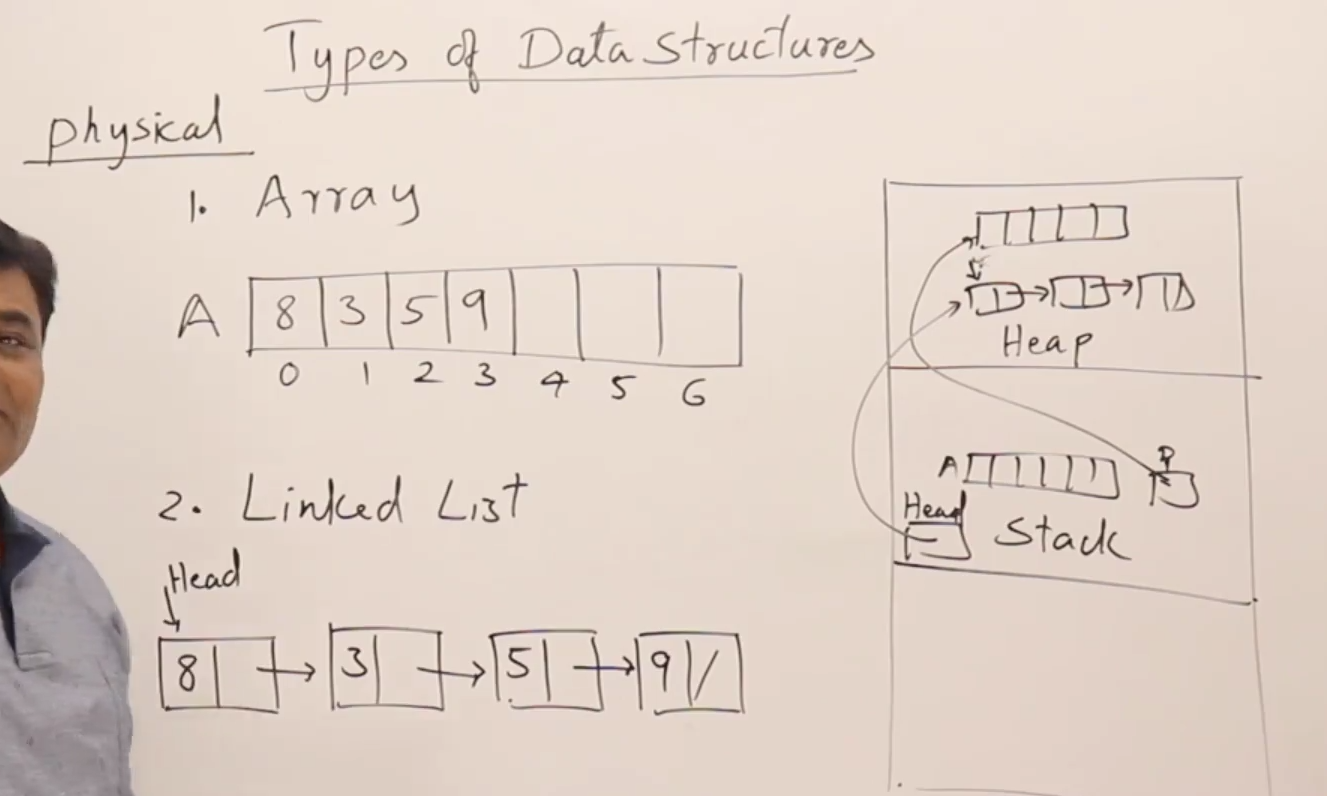 Types of Data Structures
physical
1. Array
A 8 3 5 9
0 1 2 3 4 5 6
2. Linked List
Head
8 3 5 9 /
Heap
A P
Head
Stack